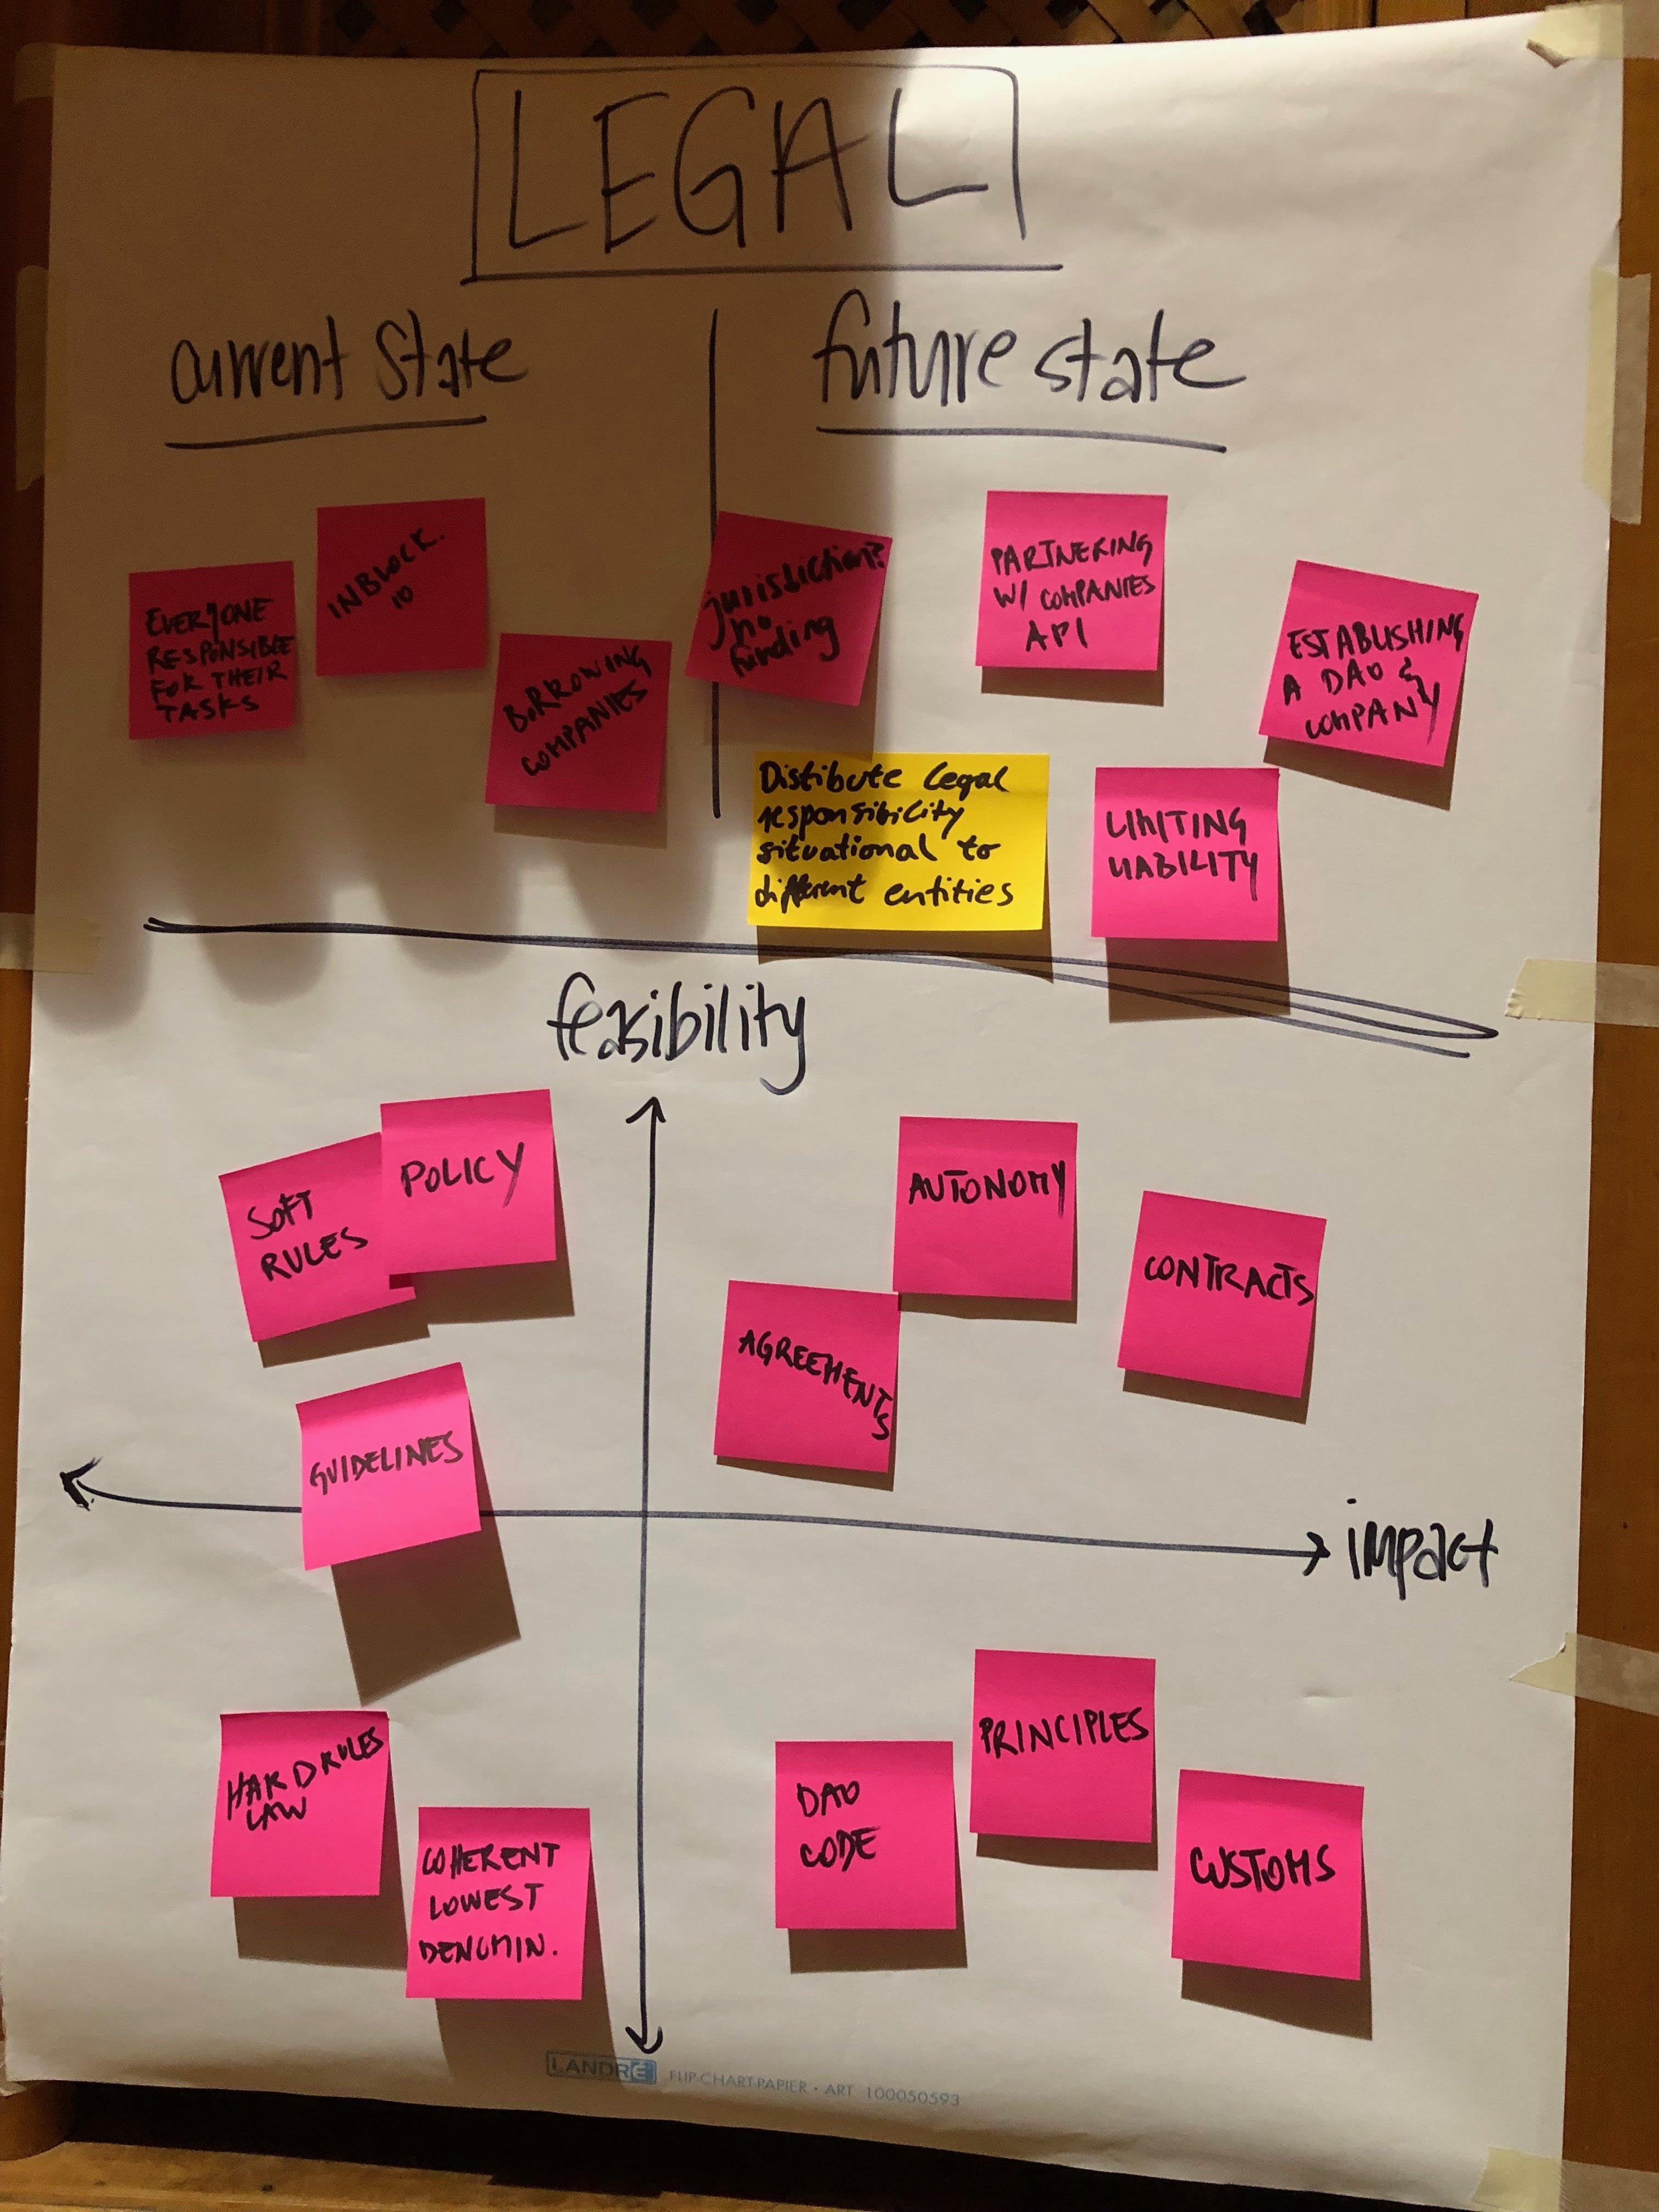 LEGAL
current state
future state
EVERYONE
RESPONSIBLE
FOR THEIR
TASKS
INBLOCK.
IO
BORROWING
COMPANIES
jurisdiction?
no
funding
PARTNERING
W/ COMPANIES
API
ESTABLISHING
A DAO &
COMPANY
Distibute legal
responsibility
situational to
different entities
LIMITING
LIABILITY
feasibility
SOFT
RULES
POLICY
GUIDELINES
AUTONOMY
AGREEMENTS
CONTRACTS
impact
HARD RULES
LAW
COHERENT
LOWEST
DENOMIN.
DAO
CODE
PRINCIPLES
CUSTOMS
LANDRÉ FLIP-CHART-PAPIER · ART. 100050593